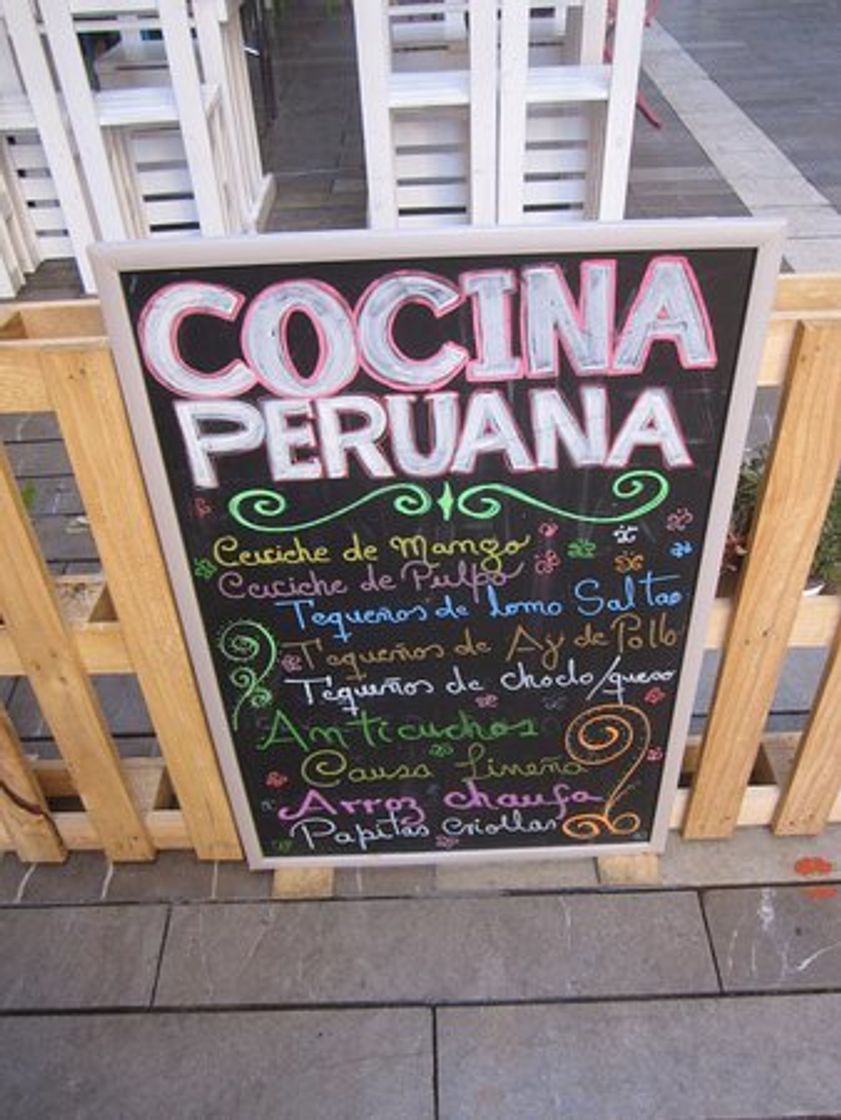 COCINA
PERUANA
Ceviche de Mango
Ceviche de Pulpo
Tequeños de Lomo Saltao
Tequeños de Ay de Pollo
Tequeños de choclo/queso
Anticuchos
Causa Limeña
Arroz chaufa
Papitas Criollas